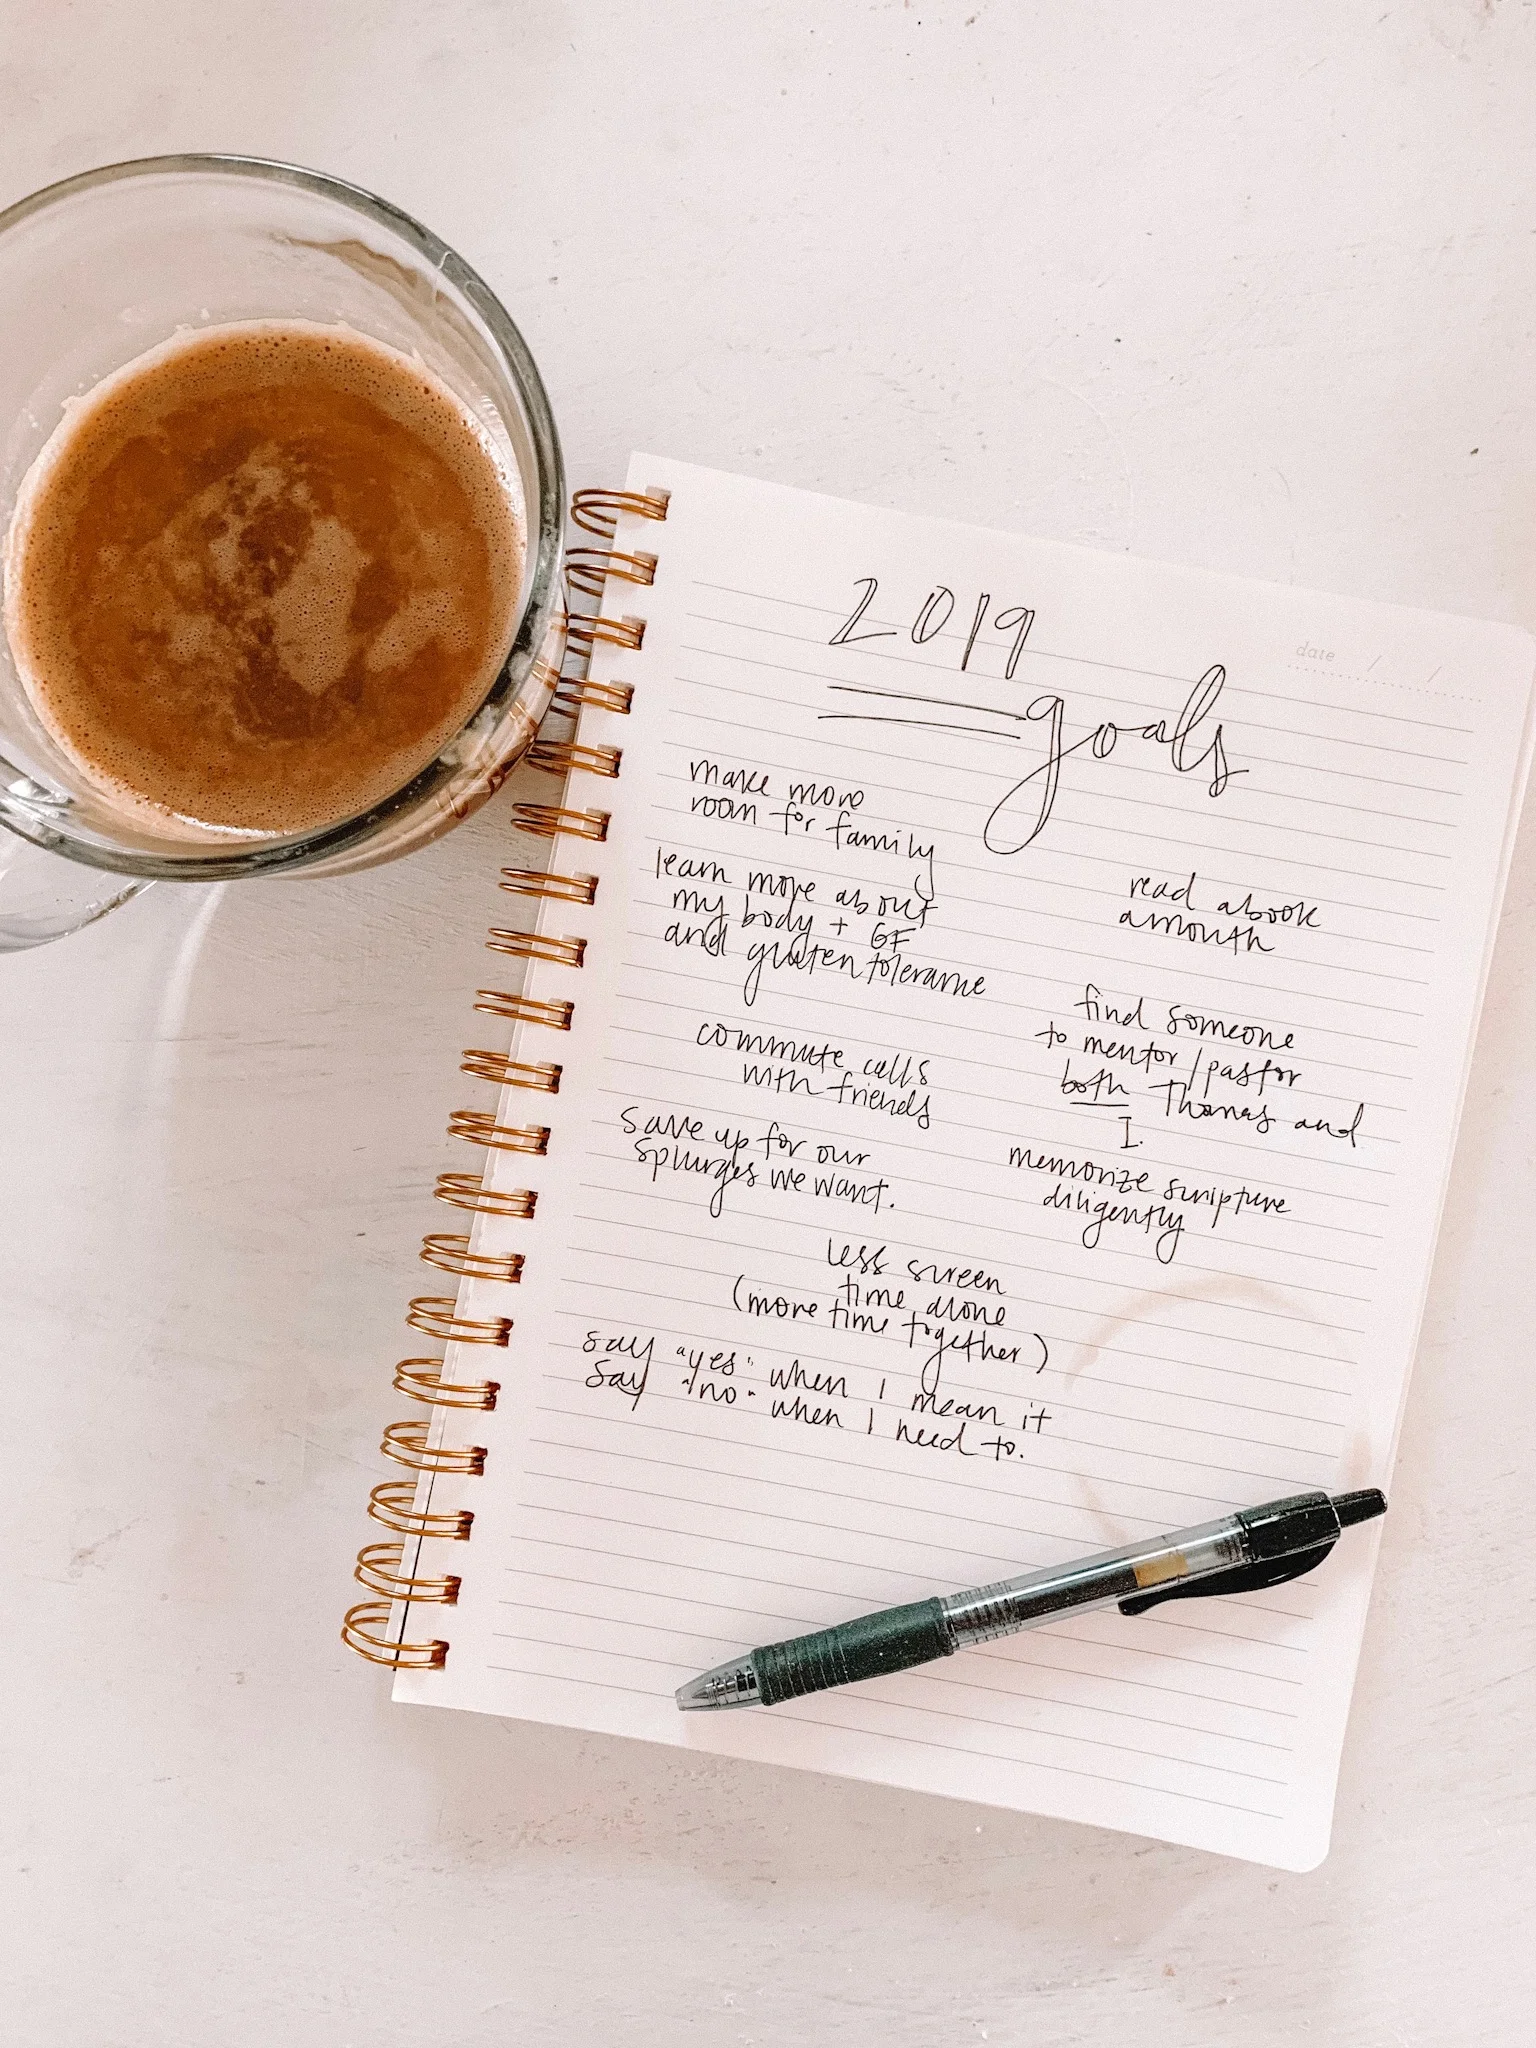 2019
goals
date / /
make more
room for family
learn more about
my body + GF
and gluten tolerance
commute calls
with friends
save up for our
splurges we want.
read a book
a month
find someone
to mentor/pastor
both Thomas and
I.
memorize scripture
diligently
less screen
time alone
(more time together)
say "yes" when I mean it
say "no" when I need to.